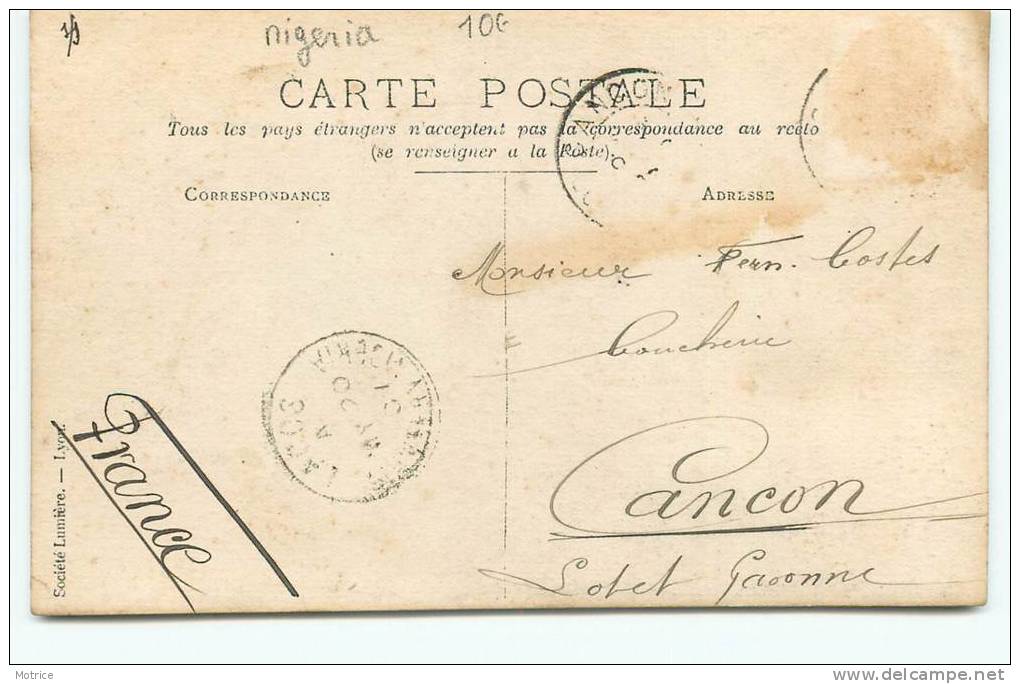 nigeria 10€
CARTE POSTALE
Tous les pays étrangers n'acceptent pas la correspondance au recto
(se renseigner a la Poste).
CORRESPONDANCE
ADRESSE
Monsieur Fern. Costes
Cancon
Lot et Garonne
France
LAGOS
Société Lumière. — Lyon.
Motrice
delcampe.net